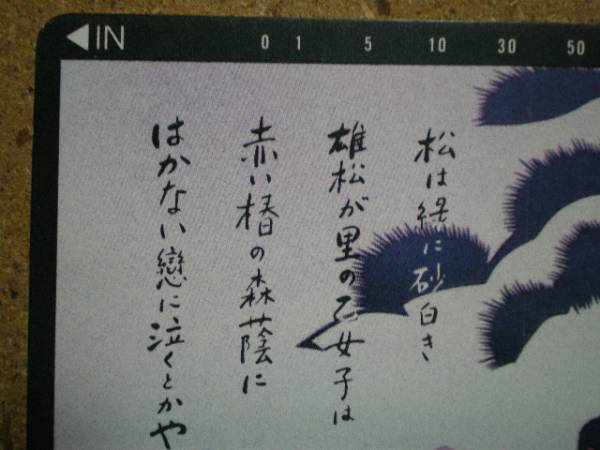 ◀IN 0 1 5 10 30 50
松は緑に砂白き
雄松が里の乙女子は
赤い椿の森蔭に
はかない戀に泣くとかや